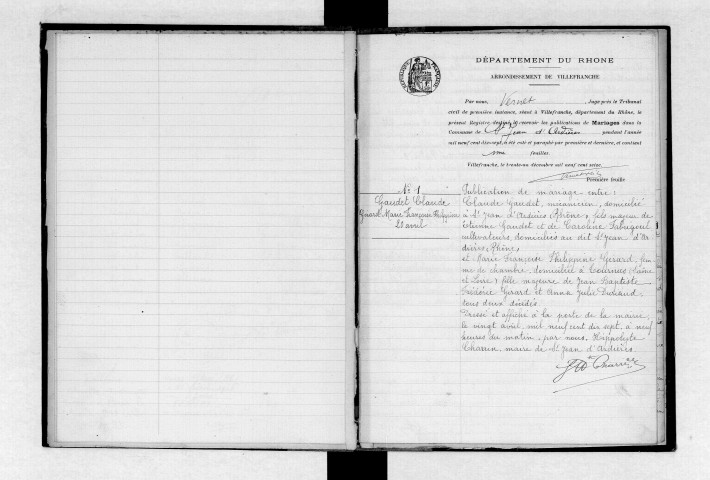 DÉPARTEMENT DU RHONE
ARRONDISSEMENT DE VILLEFRANCHE
Par nous, Vernet, Juge près le Tribunal
civil de première instance, séant à Villefranche, département du Rhône, le
présent Registre destiné à recevoir les publications de Mariages dans la
Commune de St Jean d'Ardières pendant l'année
mil neuf cent dix-sept, a été coté et paraphé par première et dernière, et contient
feuilles.
Villefranche, le trente-un décembre mil neuf cent seize.
Première feuille
N° 1
Gaudet Claude
Gérard Marie Françoise Philippine
20 avril
Publication de mariage entre :
Claude Gaudet, mécanicien, domicilié
à St Jean d'Ardières (Rhône), fils majeur de
Etienne Gaudet et de Caroline
cultivateurs, domiciliés au dit St Jean d'Ar
dières (Rhône)
et Marie Françoise Philippine Gérard, fem
me de chambre, domiciliée à Tournus (Saône
et Loire), fille majeure de Jean Baptiste
Frédéric Gérard et Anna Julie Durand,
tous deux décédés.
Dressé et affiché à la porte de la mairie,
le vingt avril mil neuf cent dix sept, à neuf
heures du matin, par nous, Hippolyte
maire de St Jean d'Ardières.